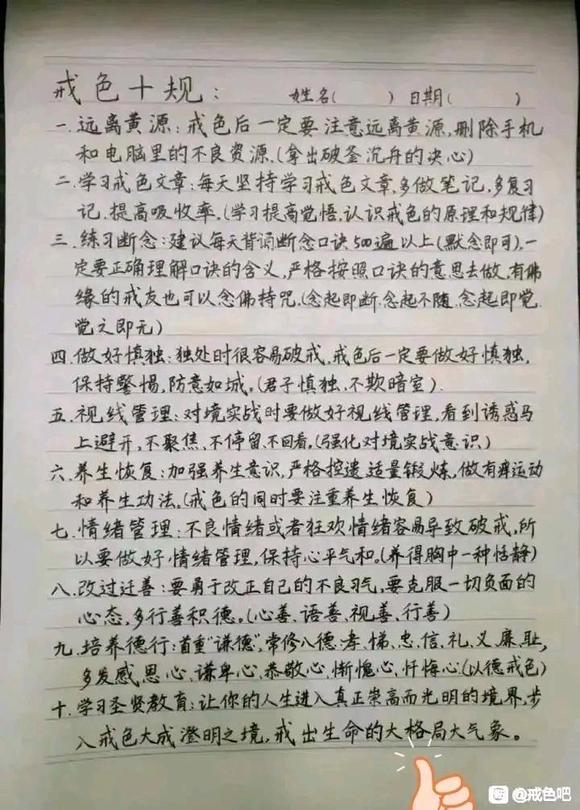 戒色十规：  姓名(  ) 日期(  )
一.远离黄源：戒色后一定要注意远离黄源,删除手机
和电脑里的不良资源.(拿出破釜沉舟的决心)
二.学习戒色文章：每天坚持学习戒色文章,多做笔记,多复习
记.提高吸收率.(学习提高觉悟,认识戒色的原理和规律)
三.练习断念：建议每天背诵断念口诀500遍以上(默念即可).一
定要正确理解口诀的含义,严格按照口诀的意思去做.有佛
缘的戒友也可以念佛持咒.(念起即断.念起不随.念起即觉.
觉之即无)
四.做好慎独：独处时很容易破戒,戒色后一定要做好慎独,
保持警惕,防意如城。(君子慎独.不欺暗室).
五.视线管理：对境实战时要做好视线管理,看到诱惑马
上避开,不聚焦、不停留.不回看。(强化对境实战意识)
六.养生恢复：加强养生意识,严格控遗,适量锻炼,做有氧运动
和养生功法。(戒色的同时要注重养生恢复)
七.情绪管理：不良情绪或者狂欢情绪容易导致破戒,所
以要做好情绪管理,保持心平气和。(养得胸中一种恬静)
八.改过迁善：要勇于改正自己的不良习气,要克服一切负面的
心态,多行善积德。(心善、语善、视善、行善)
九.培养德行：首重"谦德",常修八德:孝、悌、忠、信、礼、义、廉、耻,
多发感恩心、谦卑心、恭敬心、惭愧心、忏悔心.(以德戒色)
十.学习圣贤教育：让你的人生进入真正崇高而光明的境界,步
入戒色大成澄明之境,戒出生命的大格局大气象。
@戒色吧